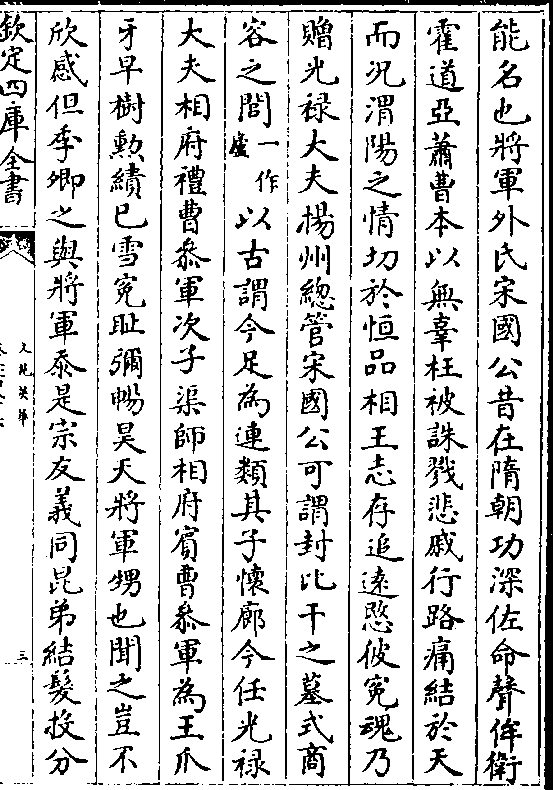 能名也將軍外氏宋國公昔在隋朝功深佐命聲侔衛
霍道亞蕭曹本以無辜枉被誅戮悲感行路痛結於天
而況渭陽之情切於恒品相王志存追遠愍彼寃魂乃
贈光禄大夫揚州總管宋國公可謂封比干之墓式商
容之閭一作廬以古謂今足為連類其子懷廓今任光禄
大夫相府禮曹叅軍次子渠師相府賓曹叅軍為王爪
牙早樹勲績已雪寃恥彌暢昊天將軍甥也聞之豈不
欣感但季卿之與將軍忝是宗友義同昆弟結髪投分
欽定四庫全書
文苑英華
三